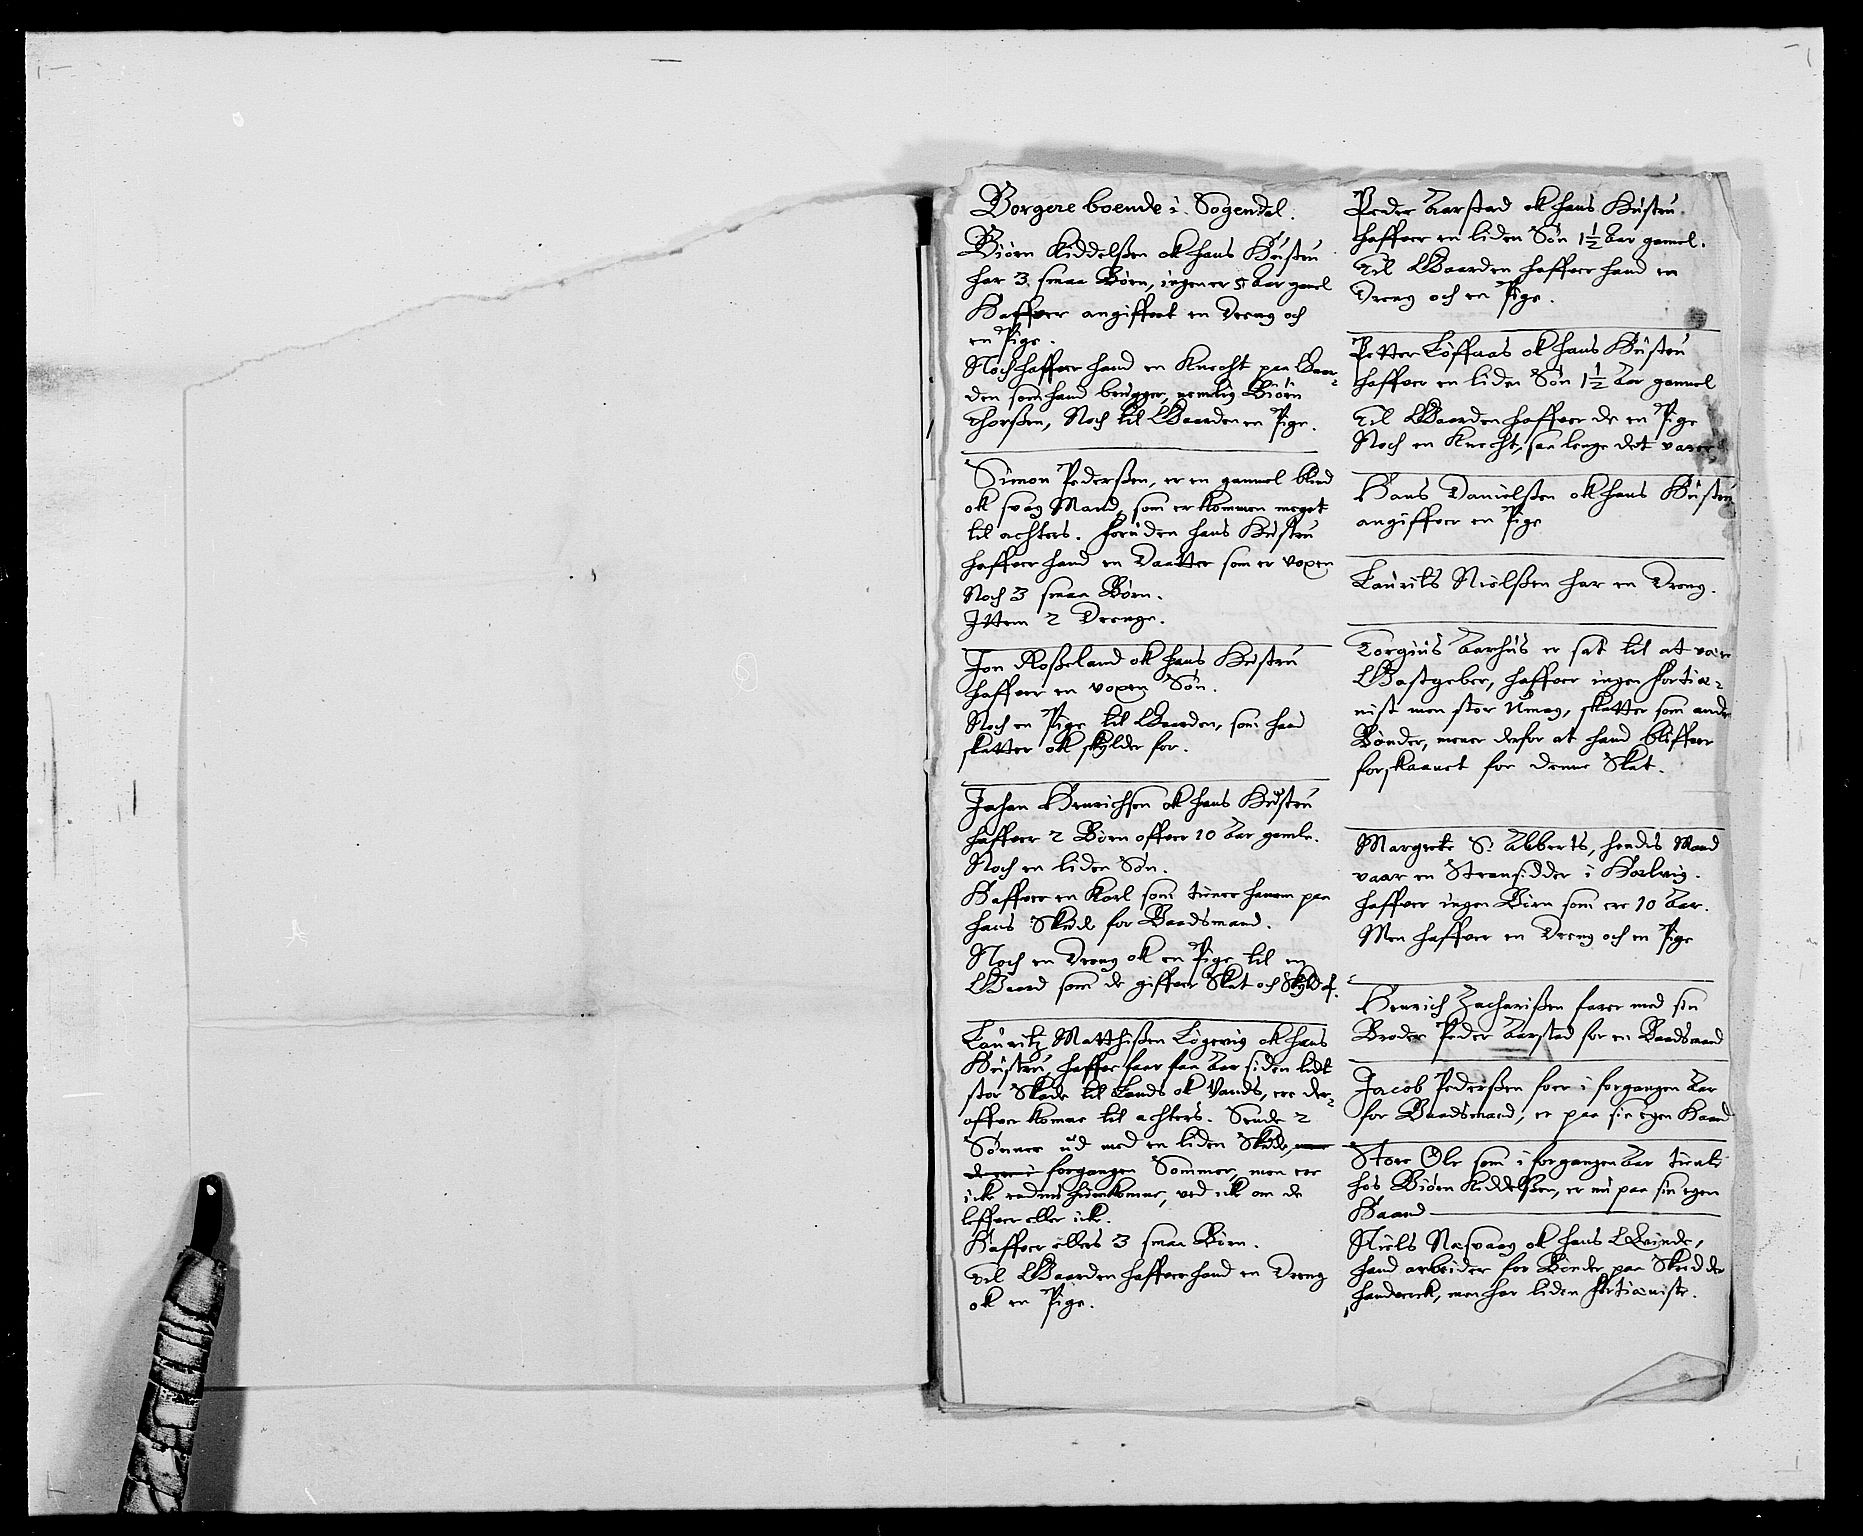 Borgere boende i Sogendal.
Biørn Kiddelßen ok hans Hustru
har 3 smaa Børn, ingen er 5 Aar gamel
Haffver angiffvet en Dreng och
en Pige.
Noch haffver hand en Knecht paa Gaar-
den som hand brugger, nemlig Biørn
Thorßen, Noch til Gaarden en Pige.
Simon Pederßen, er en gammel blind
ok svag Mand, som er kommen meget
til achters. foruden hans Hustru
haffver hand en Daatter som er voxen
Noch 3 smaa Børn.
Ittem 2 Drenge.
Jon Roßeland ok hans Hustru
haffver en voxen Søn.
Noch en Pige til Gaarden, som hand
skatter ok skylder for.
Johan Henrichsen ok hans Hustru
haffver 2 Børn offver 10 Aar gamle.
Noch en liden Søn.
Haffver en Karl som tiener hannem paa
hans Skude for Baadsmand.
Noch en Dreng ok en Pige til en
Gaard som de giffver Skat och Skyld af.
Lauritz Matthißen Løgevig ok hans
Hustru, haffver faar faa Aar siden lidt
stor Skade til Lands ok Vands, ere der-
offver komne til achters. Sende 2
Sønner ud med en liden Skude,
forgangen Sommer, men ere
icke endnu hiemkomne, ved ick om de
leffver eller icke.
Haffver ellers 3 smaa Børn.
Til Gaarden haffver hand en Dreng
ok en Pige.
Peder Aarstad ok hans Hustru.
haffver en liden Søn 1½ Aar gamel.
Til Gaarden haffver hand en
Dreng och en Pige.
Petter Løffaas ok hans Hustru
haffver en liden Søn 1½ Aar gammel
Til Gaarden haffver de en Pige
Noch en Knecht, saa lenge det varer
Hans Danielßen ok hans Hustru
angiffver en Pige
Laurits Nielßen har en Dreng.
Torgius Aarhus er sat til at være
Gastgeber, haffver ingen fortie-
nist men stor Umag, skatter som andre
Bønder, mener derfor at hand bliffver
forskaanet for denne Skat.
Margrete S. Abberts, hendis Mand
vaar en Stransidder i Hoelvig.
haffver ingen Børn som ere 10 Aar.
Men haffver en Dreng och en Pige
Henrich Zacharißen farer med sin
Broder Peder Aarstad for en Baadsmand
Jacob Pederßen foer i forgangen Aar
for Baadsmand, er paa sin egen Haand
Store Ole som i forgangen Aar tiente
hos Biørn Kiddelßen, er nu paa sin egen
Haand
Niels Nesvaag ok hans Qvinde,
hand arbeider for Bønder paa Skredder
handverck, men har liden fortieniste.